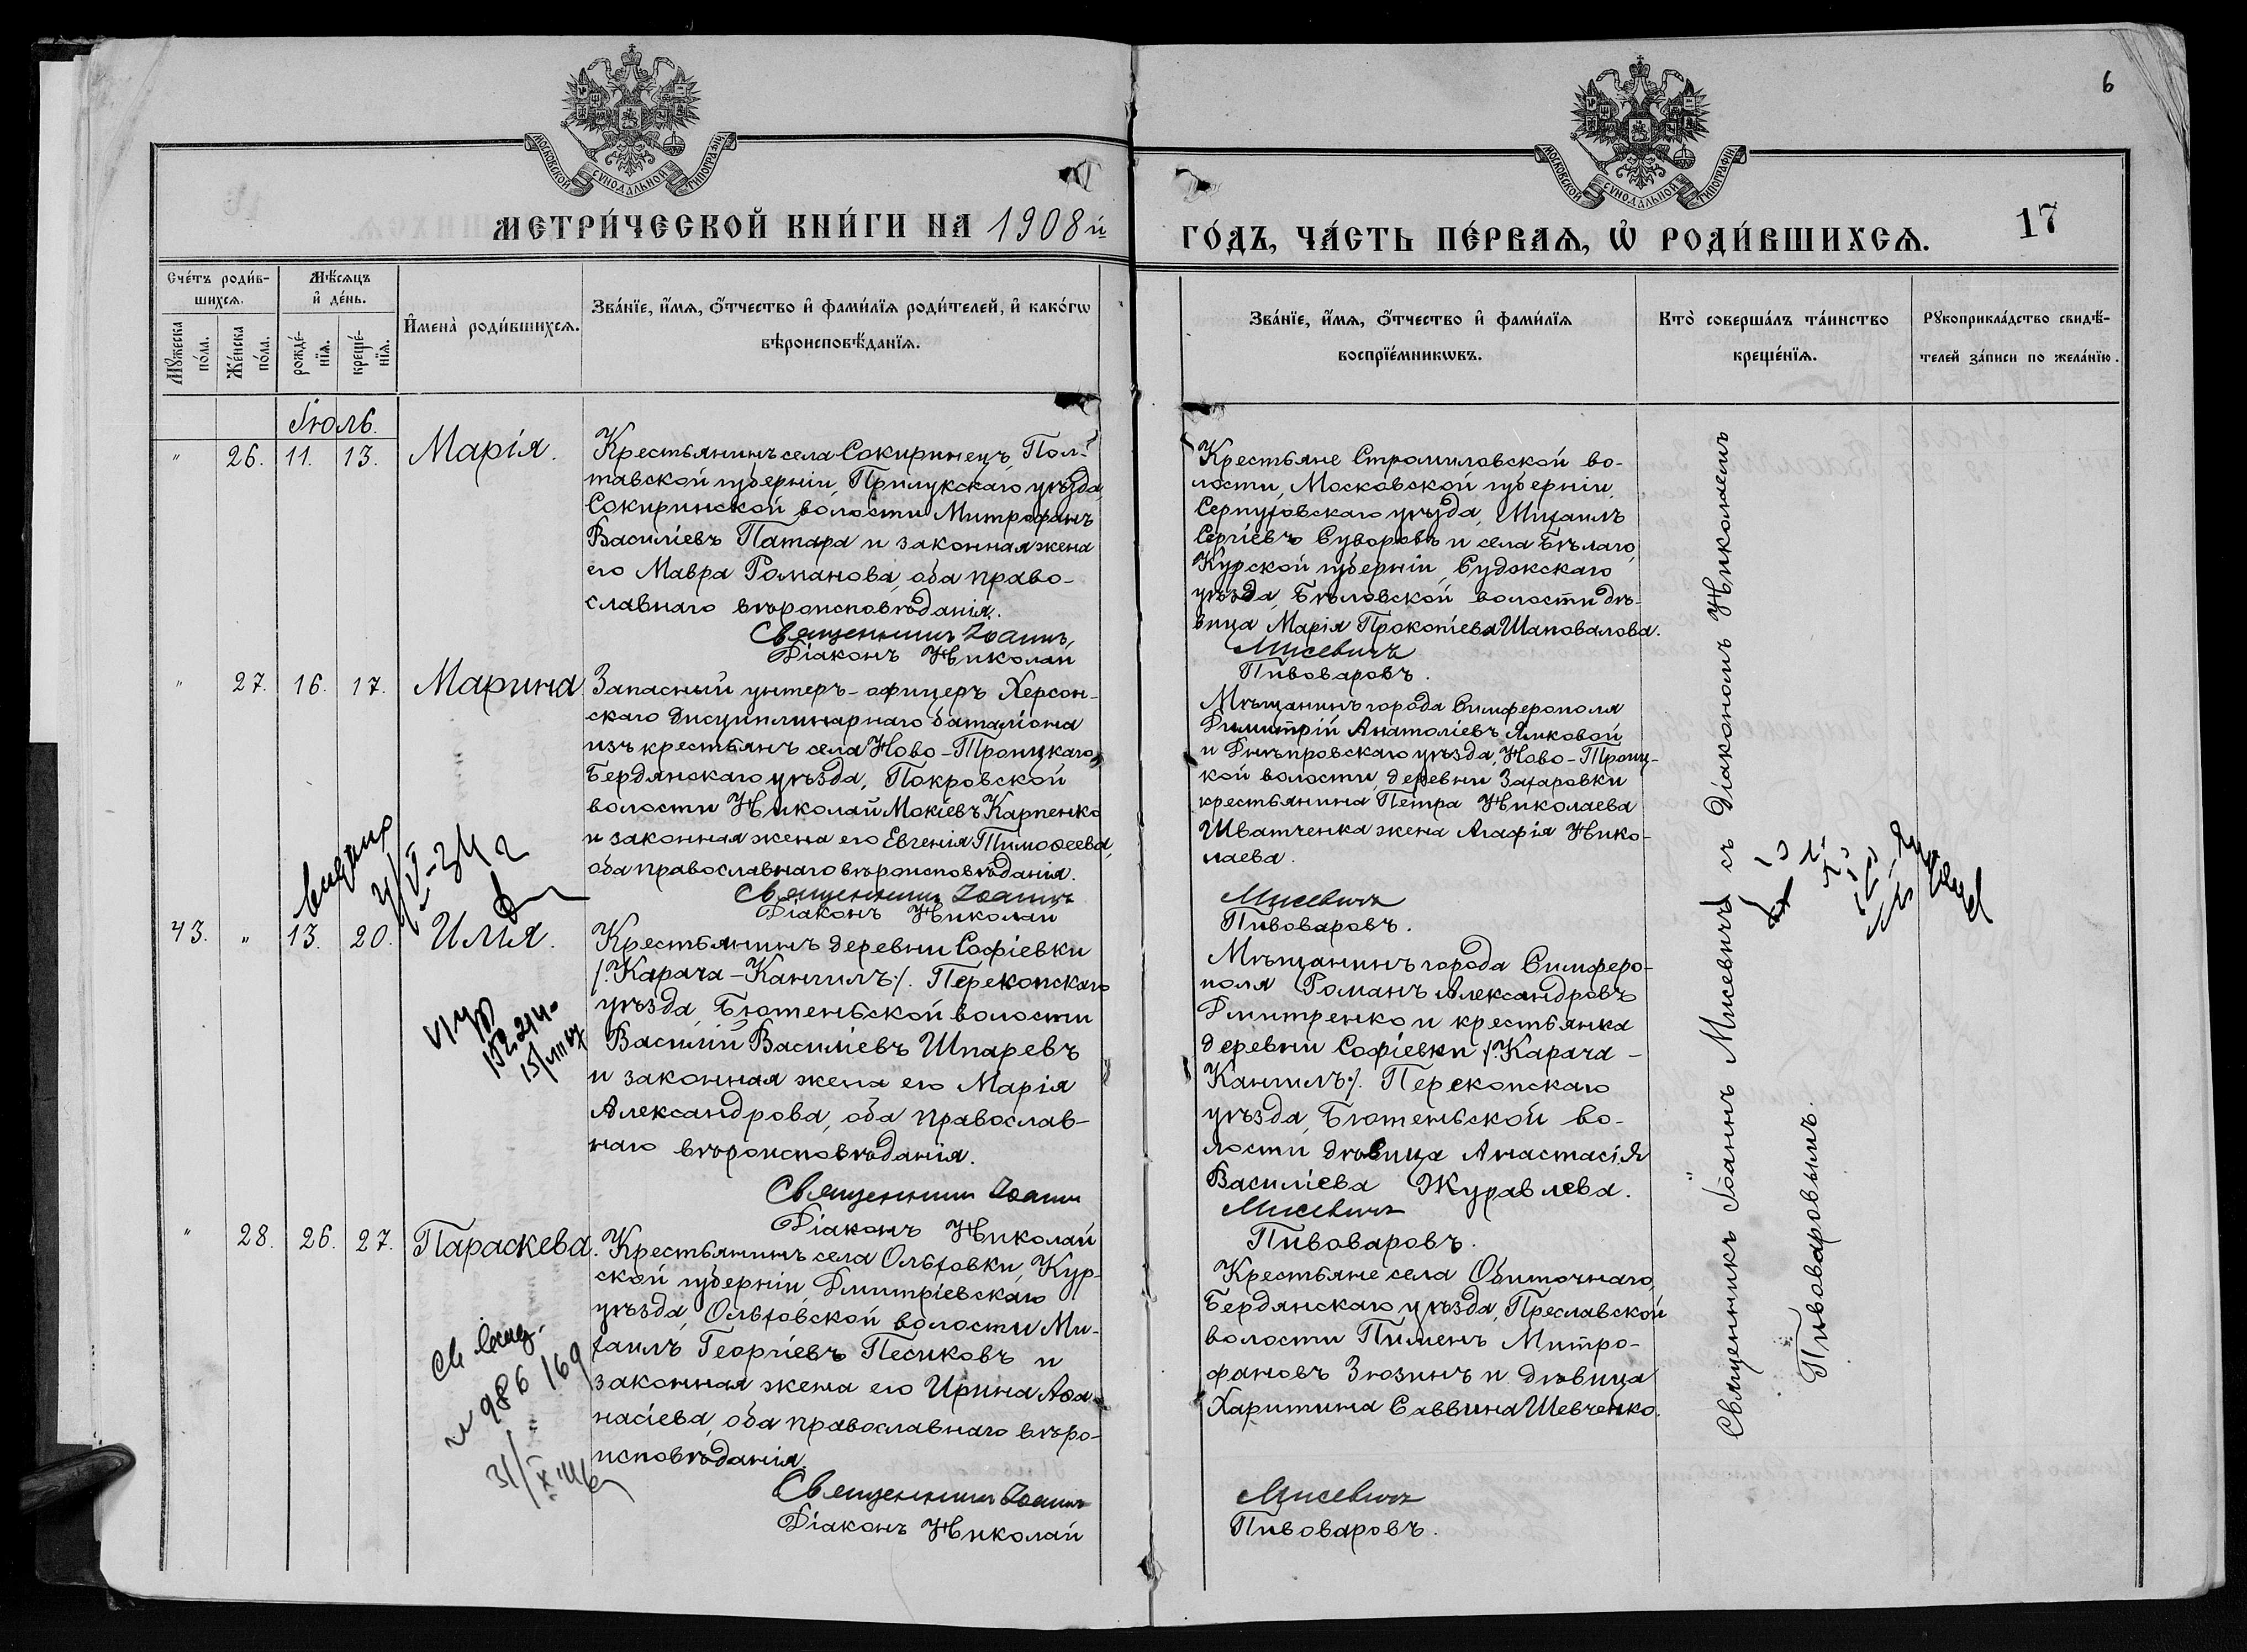 6
МОСКОВСКОЙ СѴНОДАЛЬНОЙ ТИПОГРАФІИ
МОСКОВСКОЙ СѴНОДАЛЬНОЙ ТИПОГРАФІИ
МЕТРИ́ЧЕСКОЙ КНИ́ГИ НА 1908й
ГО́ДЪ, ЧА́СТЬ ПЕ́РВАѦ, Ѡ҆ РОДИ́ВШИХСѦ.
17
Сче́тъ роди́в-
шихсѧ.
Мꙋ́жеска
по́ла.
Же́нска
по́ла.
Мѣ́сѧцъ
и҆ де́нь.
рожде́-
нїѧ.
креще́-
нїѧ.
И҆мена̀ роди́вшихсѧ.
Зва́нїе, и҆́мѧ, ѻ҆́тчество и҆ фами́лїѧ роди́телей, и҆ како́гѡ
вѣроисповѣ́данїѧ.
Зва́нїе, и҆́мѧ, ѻ҆́тчество и҆ фами́лїѧ
воспрїе́мникѡвъ.
Кто̀ соверша́лъ та́инство
креще́нїѧ.
Рꙋкоприкла́дство свидѣ́-
телей за́писи по жела́нїю.
Іюль.
" 26. 11. 13. Марія.
Крестьянинъ села Сокиринецъ, Пол-
тавской губерніи, Прилукскаго уѣзда,
Сокиринской волости Митрофанъ
Василіевъ Патара и законная жена
его Мавра Романова, оба право-
славнаго вѣроисповѣданія.
Священникъ Іоаннъ
Діаконъ Николай
Крестьяне Стромиловской во-
лости, Московской губерніи,
Серпуховскаго уѣзда, Михаилъ
Сергіевъ Суворовъ и села Бѣлаго,
Курской губерніи, Суджскаго
уѣзда, Бѣловской волости дѣ-
вица Марія Прокопіева Шаповалова.
Мисевичъ
Пивоваровъ.
" 27. 16. 17. Марина
Запасный унтеръ-офицеръ Херсон-
скаго дисциплинарнаго баталіона
изъ крестьянъ села Ново-Троицкаго,
Бердянскаго уѣзда, Покровской
волости Николай Мокіевъ Карпенко
и законная жена его Евгенія Тимоѳеева,
оба православнаго вѣроисповѣданія.
Священникъ Іоаннъ
Діаконъ Николай
Мѣщанинъ города Симферополя
Димитрій Анатоліевъ Яиковой
и Днѣпровскаго уѣзда, Ново-Троиц-
кой волости, деревни Захаровки
крестьянина Петра Николаева
Шватченка жена Агафія Нико-
лаева.
Мисевичъ
Пивоваровъ.
43. " 13. 20. Илія.
Крестьянинъ деревни Софіевки
/.Карача-Кангилъ/. Перекопскаго
уѣзда, Бютеньской волости
Василій Василіевъ Шпаревъ
и законная жена его Марія
Александрова, оба православ-
наго вѣроисповѣданія.
Священникъ Іоаннъ
Діаконъ Николай
Мѣщанинъ города Симферо-
поля Романъ Александровъ
Дмитренко и крестьянка
деревни Софіевки /.Карача-
Кангилъ/. Перекопскаго
уѣзда, Бютеньской во-
лости дѣвица Анастасія
Василіева Журавлева.
Мисевичъ
Пивоваровъ.
" 28. 26. 27. Параскева.
Крестьянинъ села Ольховки, Кур-
ской губерніи, Дмитріевскаго
уѣзда, Ольховской волости Ми-
хаилъ Георгіевъ Песиковъ и
законная жена его Ирина Аѳа-
насіева, оба православнаго вѣро-
исповѣданія.
Священникъ Іоаннъ
Діаконъ Николай
Крестьяне села Обиточнаго,
Бердянскаго уѣзда, Преславской
волости Пименъ Митро-
фановъ Зюзинъ и дѣвица
Харитина Саввина Шевченко.
Мисевичъ
Пивоваровъ.
Священникъ Іоаннъ Мисевичъ съ Діакономъ Николаемъ
Пивоваровымъ.
№ 986/69